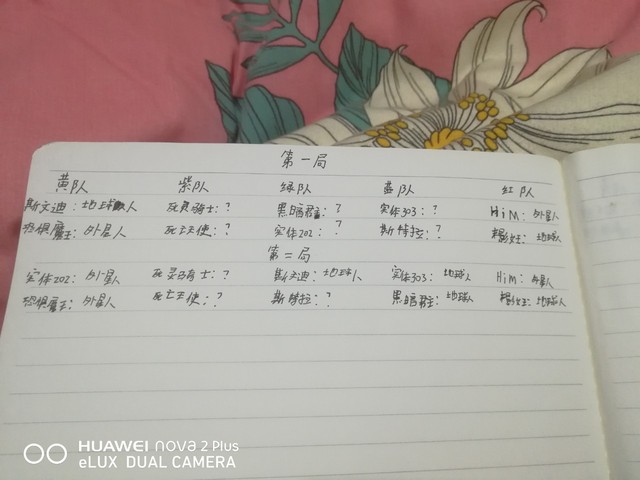 第一局
黄队 紫队 绿队 蓝队 红队
斯文迪：地球人 死灵骑士：？ 黑暗君主：？ 实体303：？ HiM：外星人
恐惧魔王：外星人 死亡天使：？ 实体202：？ 斯特拉：？ 女王：地球人
第二局
实体202：外星人 死灵骑士：？ 斯文迪：地球人 实体303：地球人 HiM：外星人
恐惧魔王：外星人 死亡天使：？ 斯特拉：？ 黑暗君主：地球人 女王：地球人
HUAWEI nova 2 Plus
eLUX DUAL CAMERA